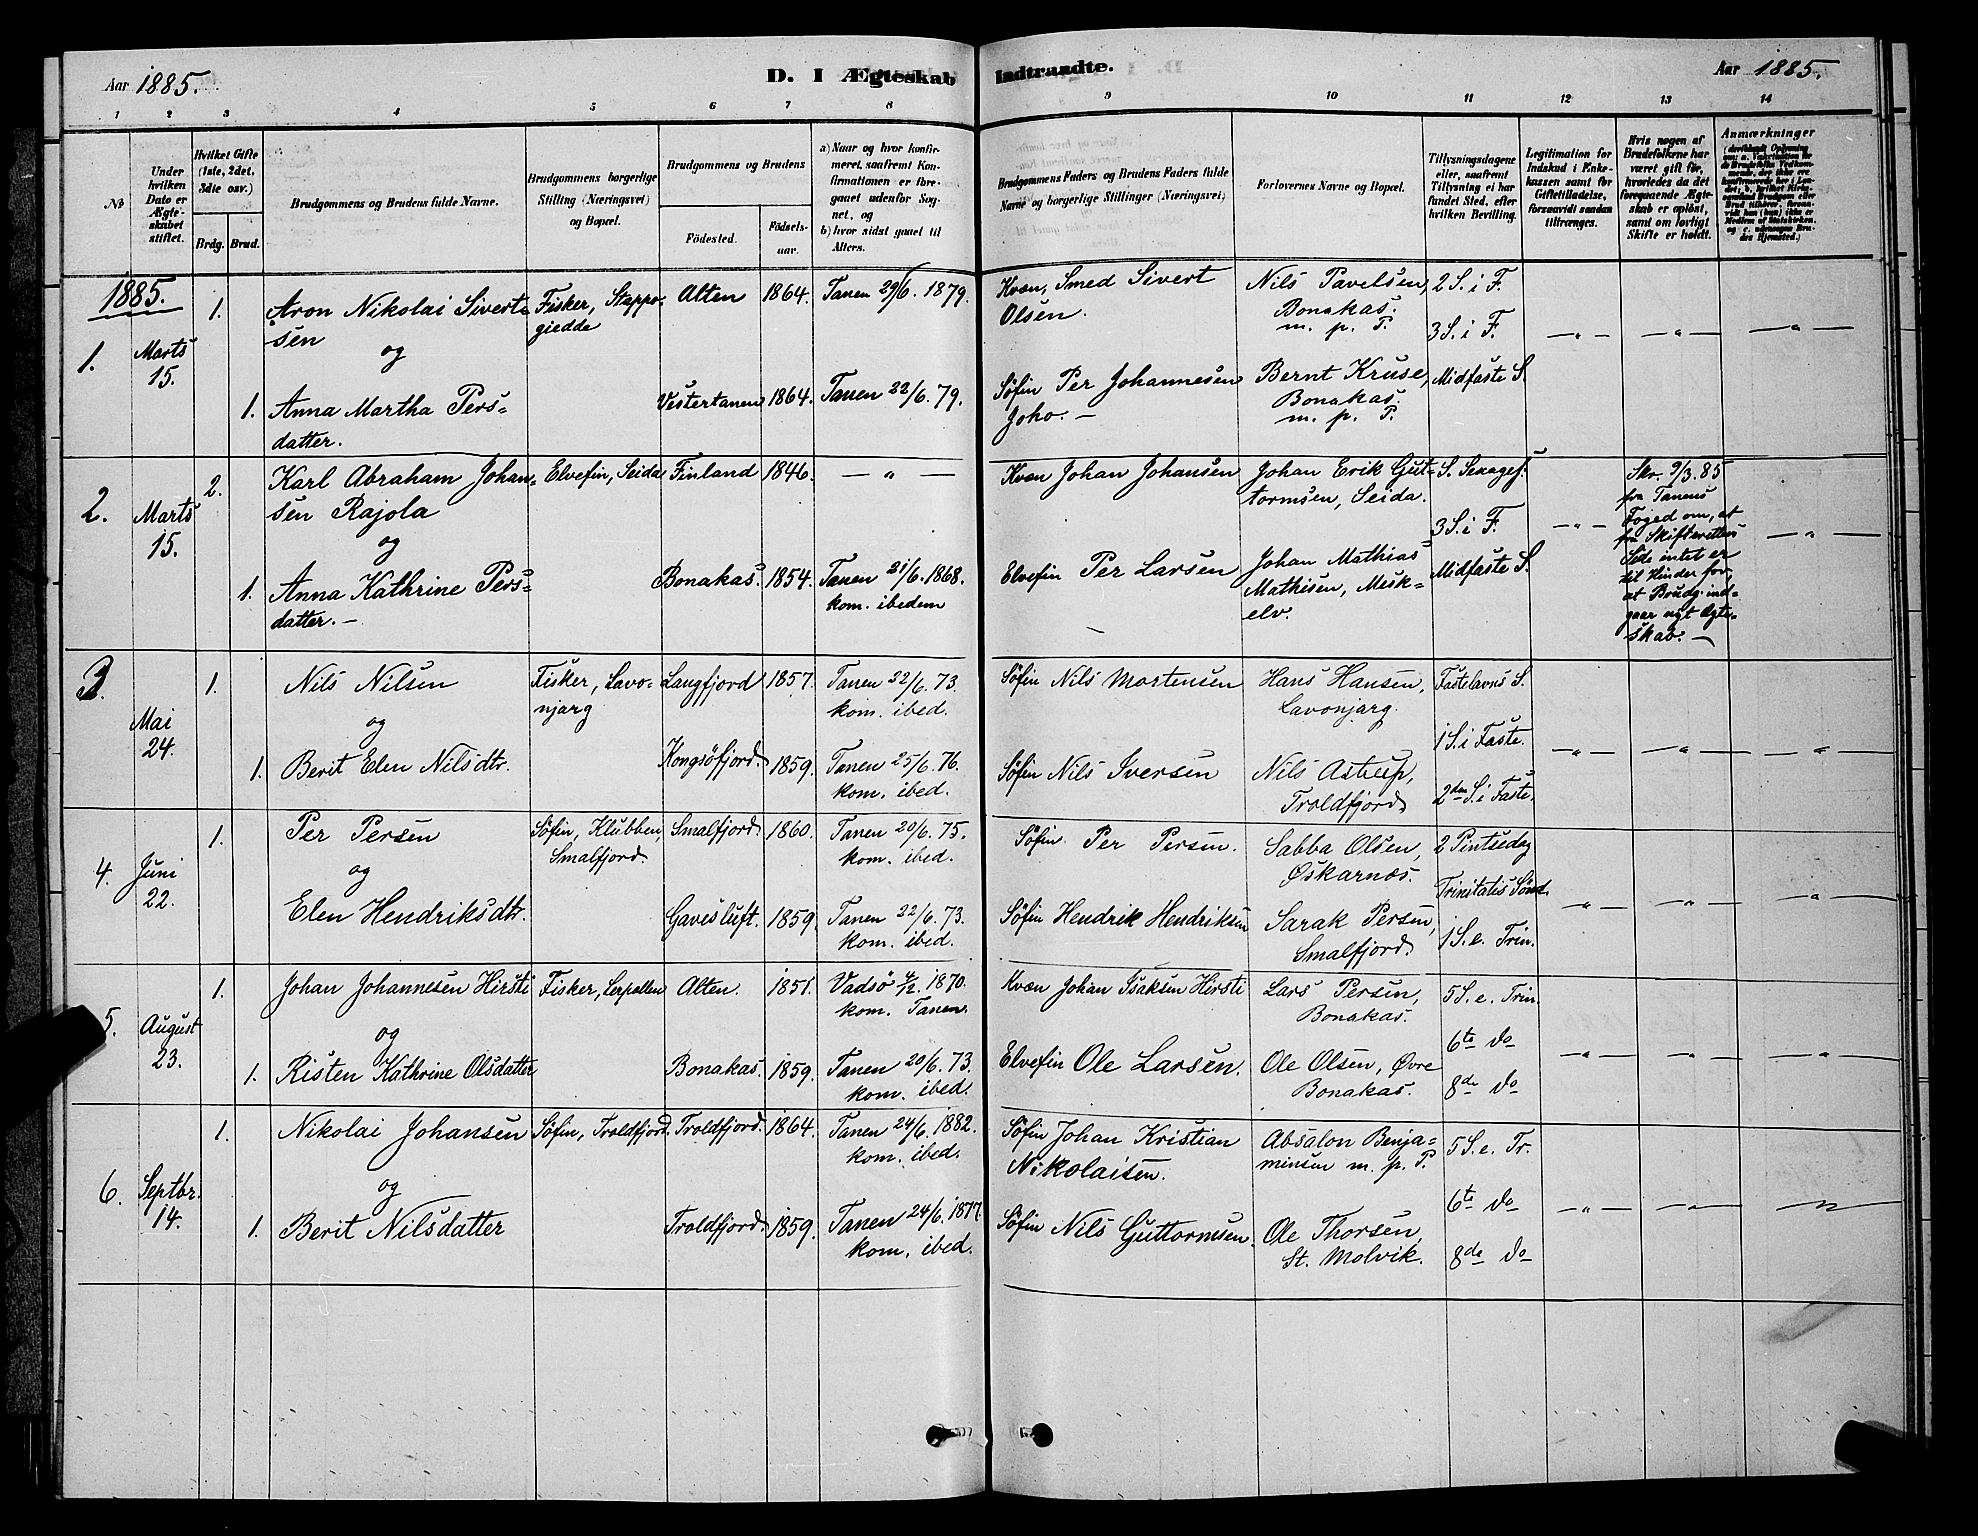 Aar 1885.
D. I Ægteskab Indtraadte.
Aar 1885.
1 2 3 4 5 6 7 8 9 10 11 12 13 14
№
Under
hvilken
Dato er
Ægte-
skabet
stiftet.
Hvilket Gifte
(1ste, 2det,
3die osv.)
Brdg. Brud.
Brudgommens og Brudens fulde Navne.
Brudgommens borgerlige
Stilling (Næringsvei)
og Bopæl.
Brudgommens og Brudens
Fødested.
Fødsels-
aar.
a) Naar og hvor konfir-
meret, saafremt Kon-
firmationen er fore-
gaaet udenfor Sog-
net, og
b) hvor sidst gaaet til
Alters.
Brudgommens Faders og Brudens Faders fulde
Navne og borgerlige Stillinger (Næringsvei)
Forlovernes Navne og Bopæl.
Tillysningsdagene
eller, saafremt
Tillysning ei har
fundet Sted, efter
hvilken Bevilling.
Legitimation for
Indskud i Enke-
kassen samt for
Giftetilladelse,
forsaavidt saadan
tiltrænges.
Hvis nogen af
Brudefolkene har
været gift før,
hvorledes da det
foregaaende Ægte-
skab er opløst,
samt om lovligt
Skifte er holdt.
Anmærkninger
1885.
1.
Marts
15.
1.
Aron Nikolai Siverte
sen
og
1. Anna Martha Pers-
datter.
Fisker, Stappo-
giedde
Alten 1864. Tanen 29/6. 1879.
Vestertanen 1864. Tanen 22/6. 79.
Kvæn, Smed Sivert
Olsen.
Søfin Per Johannesen
Joho. —
Nils Pavelsen,
Bonakas.
m. p. P.
Bernt Kruse,
Bonakas.
m. p. P.
2 S. i F.
3 S. i F.
Midfaste S.
— " — — " — — " —
2.
Marts
15.
2.
Karl Abraham Johan-
sen Rajola
og
1. Anna Kathrine Pers-
datter. —
Elvefin, Seida
Finland 1846. — " —
Bonakas. 1854. Tanen 21/6. 1868.
kom. ibedem
Kvæn Johan Johansen
Elvefin Per Larsen
Johan Erik Gut-
tormsen, Seida.
Johan Mathias
Mathisen, Mesk-
elv.
S. Sexagef.
3 S. i F.
Midfaste S.
— " —
Skr. 9/3. 85
fra Tanens
Foged om, at
fra Skifterettens
Side intet er
til Hinder for,
at Brudg. ind-
gaar nyt Ægte-
skab. —
— " —
3.
Mai
24.
1.
Nils Nilsen
og
1. Berit Elen Nilsdtr.
Fisker, Lavo-
njarg
Langfjord 1857. Tanen 22/6. 73.
kom. ibed.
Kongsöfjord. 1859. Tanen 25/6. 76.
kom. ibed.
Søfin Nils Mortensen
Søfin Nils Iversen
Hans Hansen,
Lavonjarg.
Nils Astrup,
Troldfjord
Fastelavns S.
1 S. i Faste.
2den S. i Faste.
— " — — " — — " —
4.
Juni
22.
1.
Per Persen
og
Elen Hendriksdtr.
Søfin, Klubben,
Smalfjord.
Smalfjord. 1860. Tanen 20/6. 75.
kom. ibed.
Gavisluft. 1859. Tanen 22/6. 73.
kom. ibed.
Søfin Per Persen.
Søfin Hendrik Hendriksen
Sabba Olsen,
Øskarnæs.
Sarak Persen,
Smalfjord.
2 Pintsedag
Trinitatis Sønd.
1 S. e. Trin.
— " — — " — — " —
5.
August
23.
1.
Johan Johannesen Hirsti
og
1. Risten Kathrine Olsdatter
Fisker, Lerpollen
Alten. 1851. Vadsö 4/12. 1870.
kom. Tanen.
Bonakas. 1859. Tanen 20/6. 73.
kom. ibed.
Kvæn Johan Isaksen Hirsti
Elvefin Ole Larsen.
Lars Persen,
Bonakas.
Ole Olsen, Øvre
Bonakas.
5 S. e. Trin.
6te do
8de do
— " — — " — — " —
6.
Septbr.
14.
1.
Nikolai Johansen
og
1. Berit Nilsdatter
Søfin, Troldfjord.
Troldfjord. 1864. Tanen 24/6. 1882.
kom. ibed.
Troldfjord. 1859. Tanen 24/6. 1877.
kom. ibed.
Søfin Johan Kristian
Nikolaisen.
Søfin Nils Guttormsen.
Absalon Benja-
minsen m. p. P.
Ole Thorsen,
St. Molvik.
5 S. e. Tr.
6te do
8de do
— " — — " — — " —